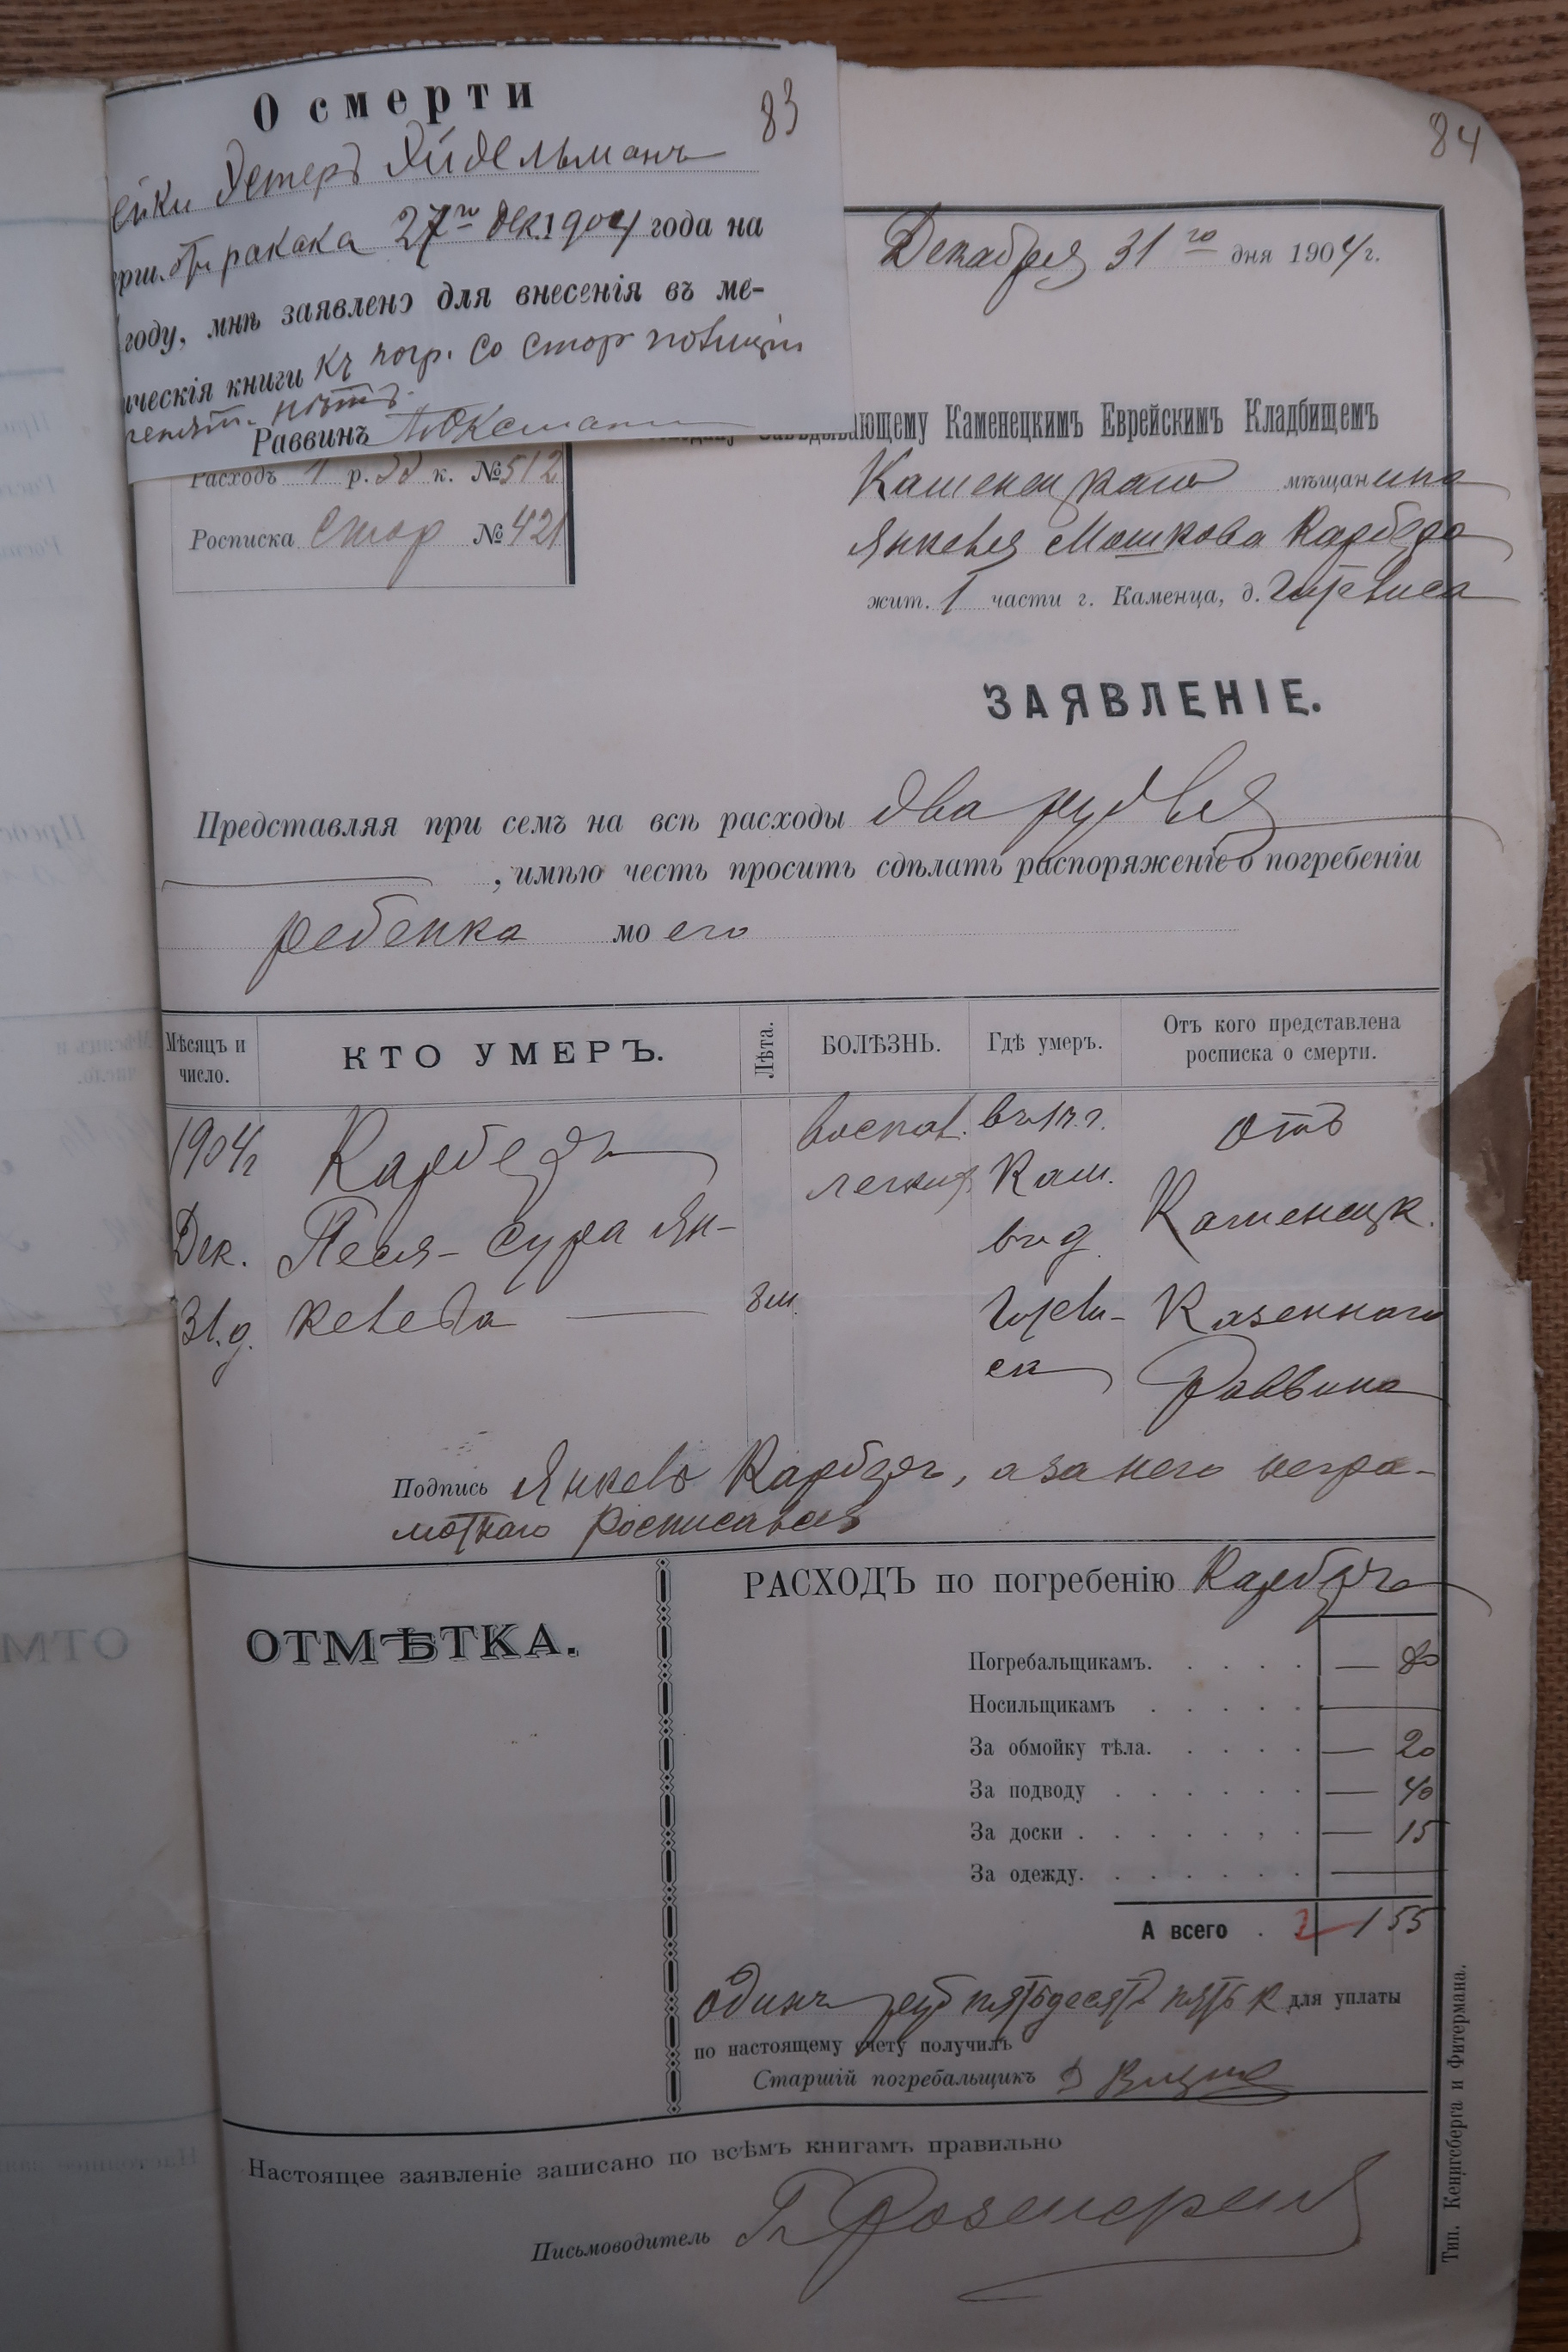 О смерти
83
ейки Эстеръ Эйдельманъ
ерш. отъ ракака 27го Дек. 1904 года на
году, мнѣ заявлено для внесенія въ ме-
ическія книги къ погр. со стор полиціи
препят. нѣтъ.
Раввинъ
84
Декабря 31го дня 1904 г.
ающему Каменецкимъ Еврейскимъ Кладбищемъ
Расходъ 1 р. к. № 512
Росписка стор № 421
Каменецкаго мѣщанина
Янкеля Мошкова Карбера
жит. 1 части г. Каменца, д. Гурвиса
ЗАЯВЛЕНІЕ.
Представляя при семъ на всѣ расходы два рубля
, имѣю честь просить сдѣлать распоряженіе о погребеніи
ребенка моего
Мѣсяцъ и число.
КТО УМЕРЪ.
Лѣта.
БОЛѢЗНЬ.
Гдѣ умеръ.
Отъ кого представлена росписка о смерти.
1904 г. воспал. въ 1 ч. г. Отъ
легких Кам. Каменецк.
Дек. Песя-Сура Ян- въ д.
31.д. келева 8 м. Казеннаго
са Раввина
Подпись Янкель , а за него негра-
мотнаго росписался
ОТМѢТКА.
РАСХОДЪ по погребенію
Погребальщикамъ. — 80
Носильщикамъ —
За обмойку тѣла. — 20
За подводу — 40
За доски — 15
За одежду. —
А всего 1 55
одинъ руб пятьдесятъ пять к для уплаты
по настоящему счету получилъ
Старшій погребальщикъ
Настоящее заявленіе записано по всѣмъ книгамъ правильно
Письмоводитель
Тип. Кенигсберга и Фитермана.